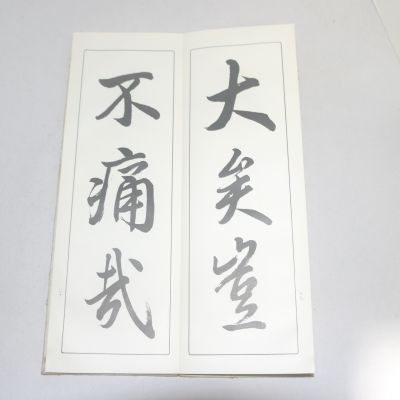 大矣豈
不痛哉